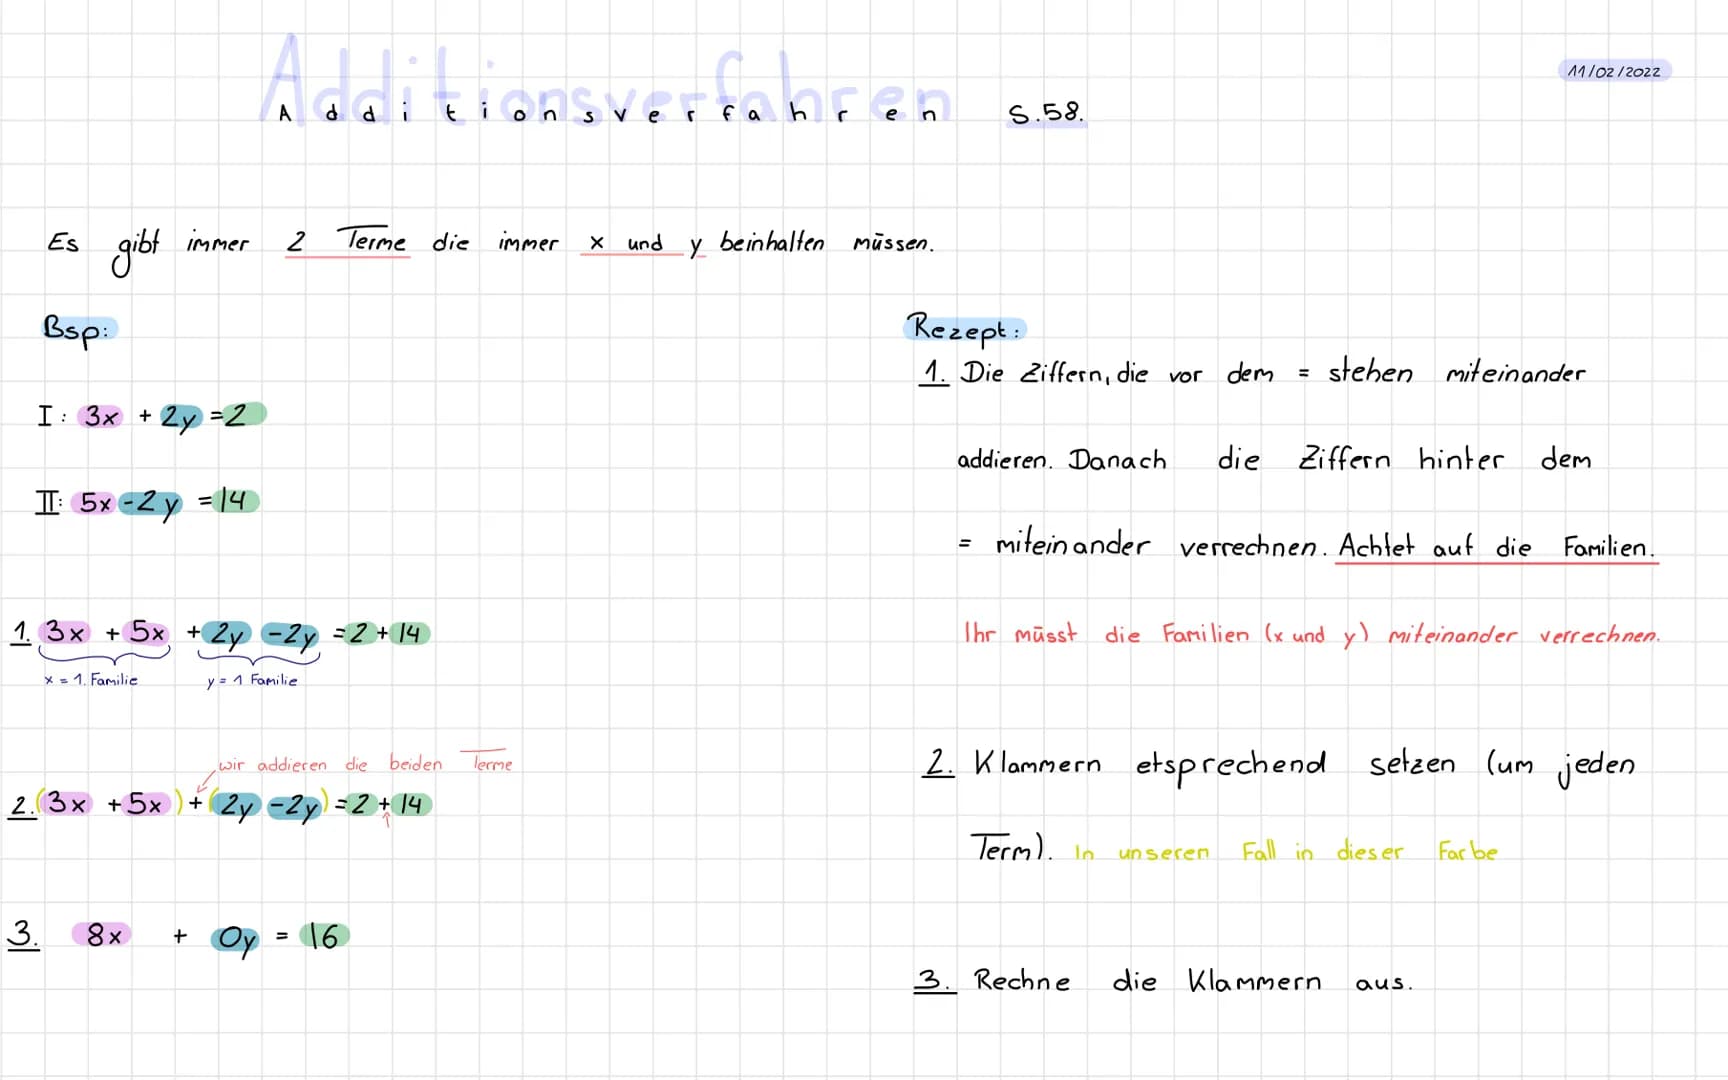 Additionsverfahren
Additionsverfahren S.58.
11/02/2022
Es gibt immer 2 Terme die immer x und y beinhalten müssen.
Bsp:
I: 3x + 2y = 2
II: 5x - 2y = 14
1. 3x + 5x + 2y - 2y = 2 + 14
x = 1. Familie y = 1 Familie
wir addieren die beiden Terme
2. (3x + 5x) + (2y - 2y) = 2 + 14
3. 8x + 0y = 16
Rezept:
1. Die Ziffern, die vor dem = stehen miteinander
addieren. Danach die Ziffern hinter dem
= miteinander verrechnen. Achtet auf die Familien.
Ihr müsst die Familien (x und y) miteinander verrechnen.
2. Klammern etsprechend setzen (um jeden
Term). In unseren Fall in dieser Farbe
3. Rechne die Klammern aus.